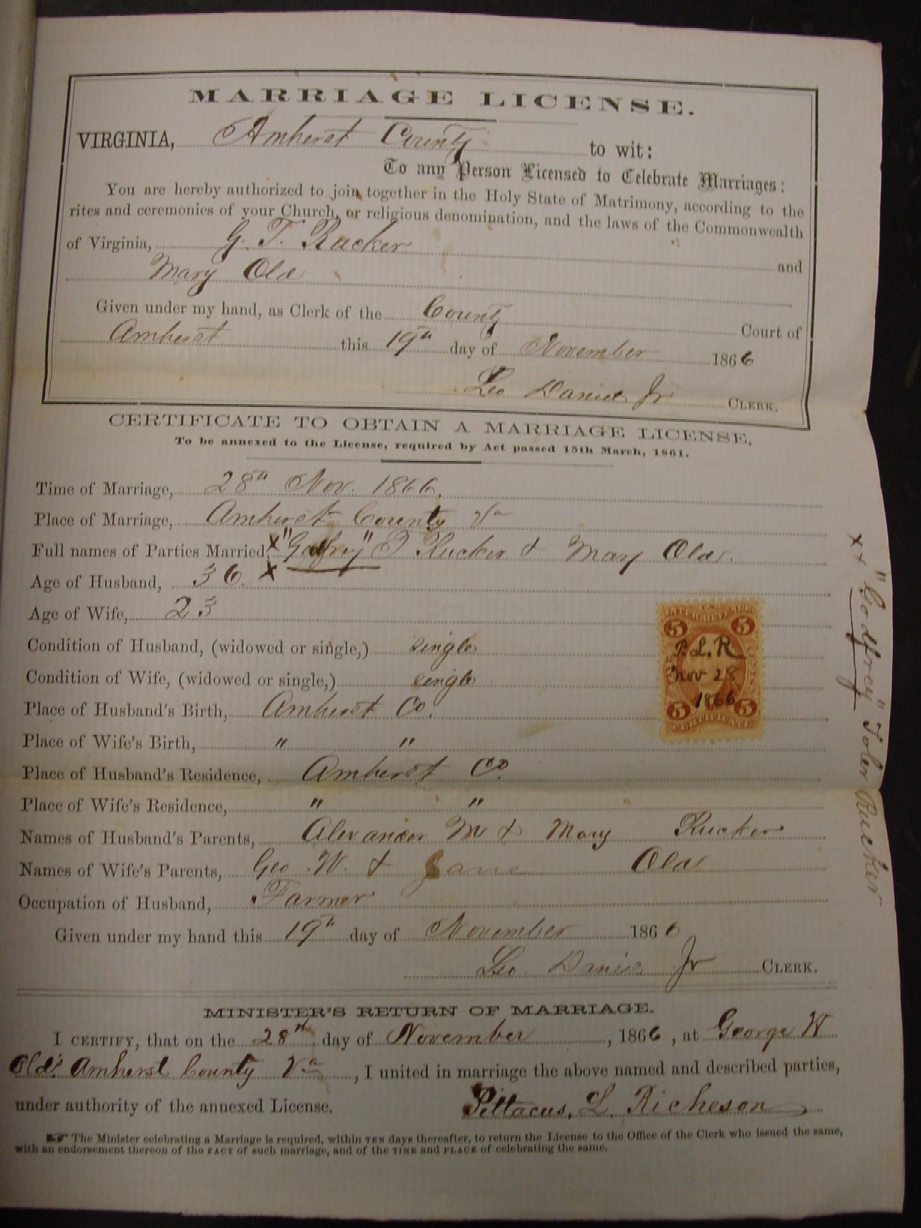 MARRIAGE LICENSE.
VIRGINIA, Amherst County to wit:
To any Person Licensed to Celebrate Marriages:
You are hereby authorized to join together in the Holy State of Matrimony, according to the
rites and ceremonies of your Church, or religious denomination, and the laws of the Commonwealth
of Virginia, G. T. Rucker and
Mary Old
Given under my hand, as Clerk of the County Court of
Amherst this 19th day of November 1866
Leo Daniel Jr CLERK.
CERTIFICATE TO OBTAIN A MARRIAGE LICENSE,
To be annexed to the License, required by Act passed 15th March, 1861.
Time of Marriage, 28th Nov. 1866.
Place of Marriage, Amherst County Va
Full names of Parties Married, x "Godfrey" T Rucker & Mary Old.
Age of Husband, 36. x
Age of Wife, 23
Condition of Husband, (widowed or single,) single
Condition of Wife, (widowed or single,) single
Place of Husband's Birth, Amherst Co.
Place of Wife's Birth, " "
Place of Husband's Residence, Amherst Co.
Place of Wife's Residence, " "
Names of Husband's Parents, Alexander M & Mary Rucker
Names of Wife's Parents, Geo. W. & Jane Old
Occupation of Husband, Farmer
Given under my hand this 19th day of November 1866
Leo Daniel Jr CLERK.
5 5
P.L.R
Nov 28
1866
5 5
CERTIFICATE
x x "Godfrey" Toler Rucker
MINISTER'S RETURN OF MARRIAGE.
I CERTIFY, that on the 28th day of November, 1866, at George W
Old's Amherst County Va, I united in marriage the above named and described parties,
under authority of the annexed License. Pittacus, L. Richeson
☞ The Minister celebrating a Marriage is required, within TEN days thereafter, to return the License to the Office of the Clerk who issued the same,
with an endorsement thereon of the FACT of such marriage, and of the TIME and PLACE of celebrating the same.